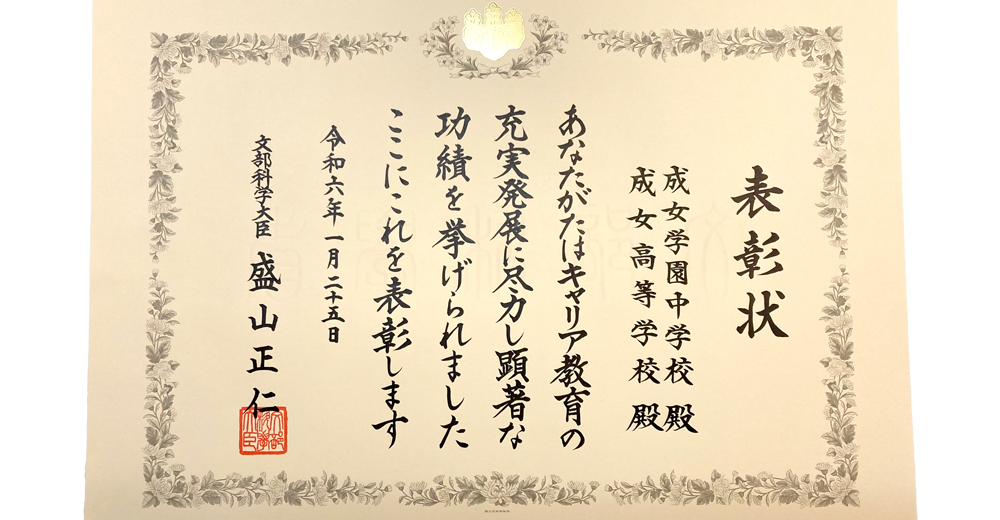 表彰状
成女学園中学校 殿
成女高等学校 殿
あなたがたはキャリア教育の
充実発展に尽力し顕著な
功績を挙げられました
ここにこれを表彰します
令和六年一月二十五日
文部科学大臣 盛山正仁